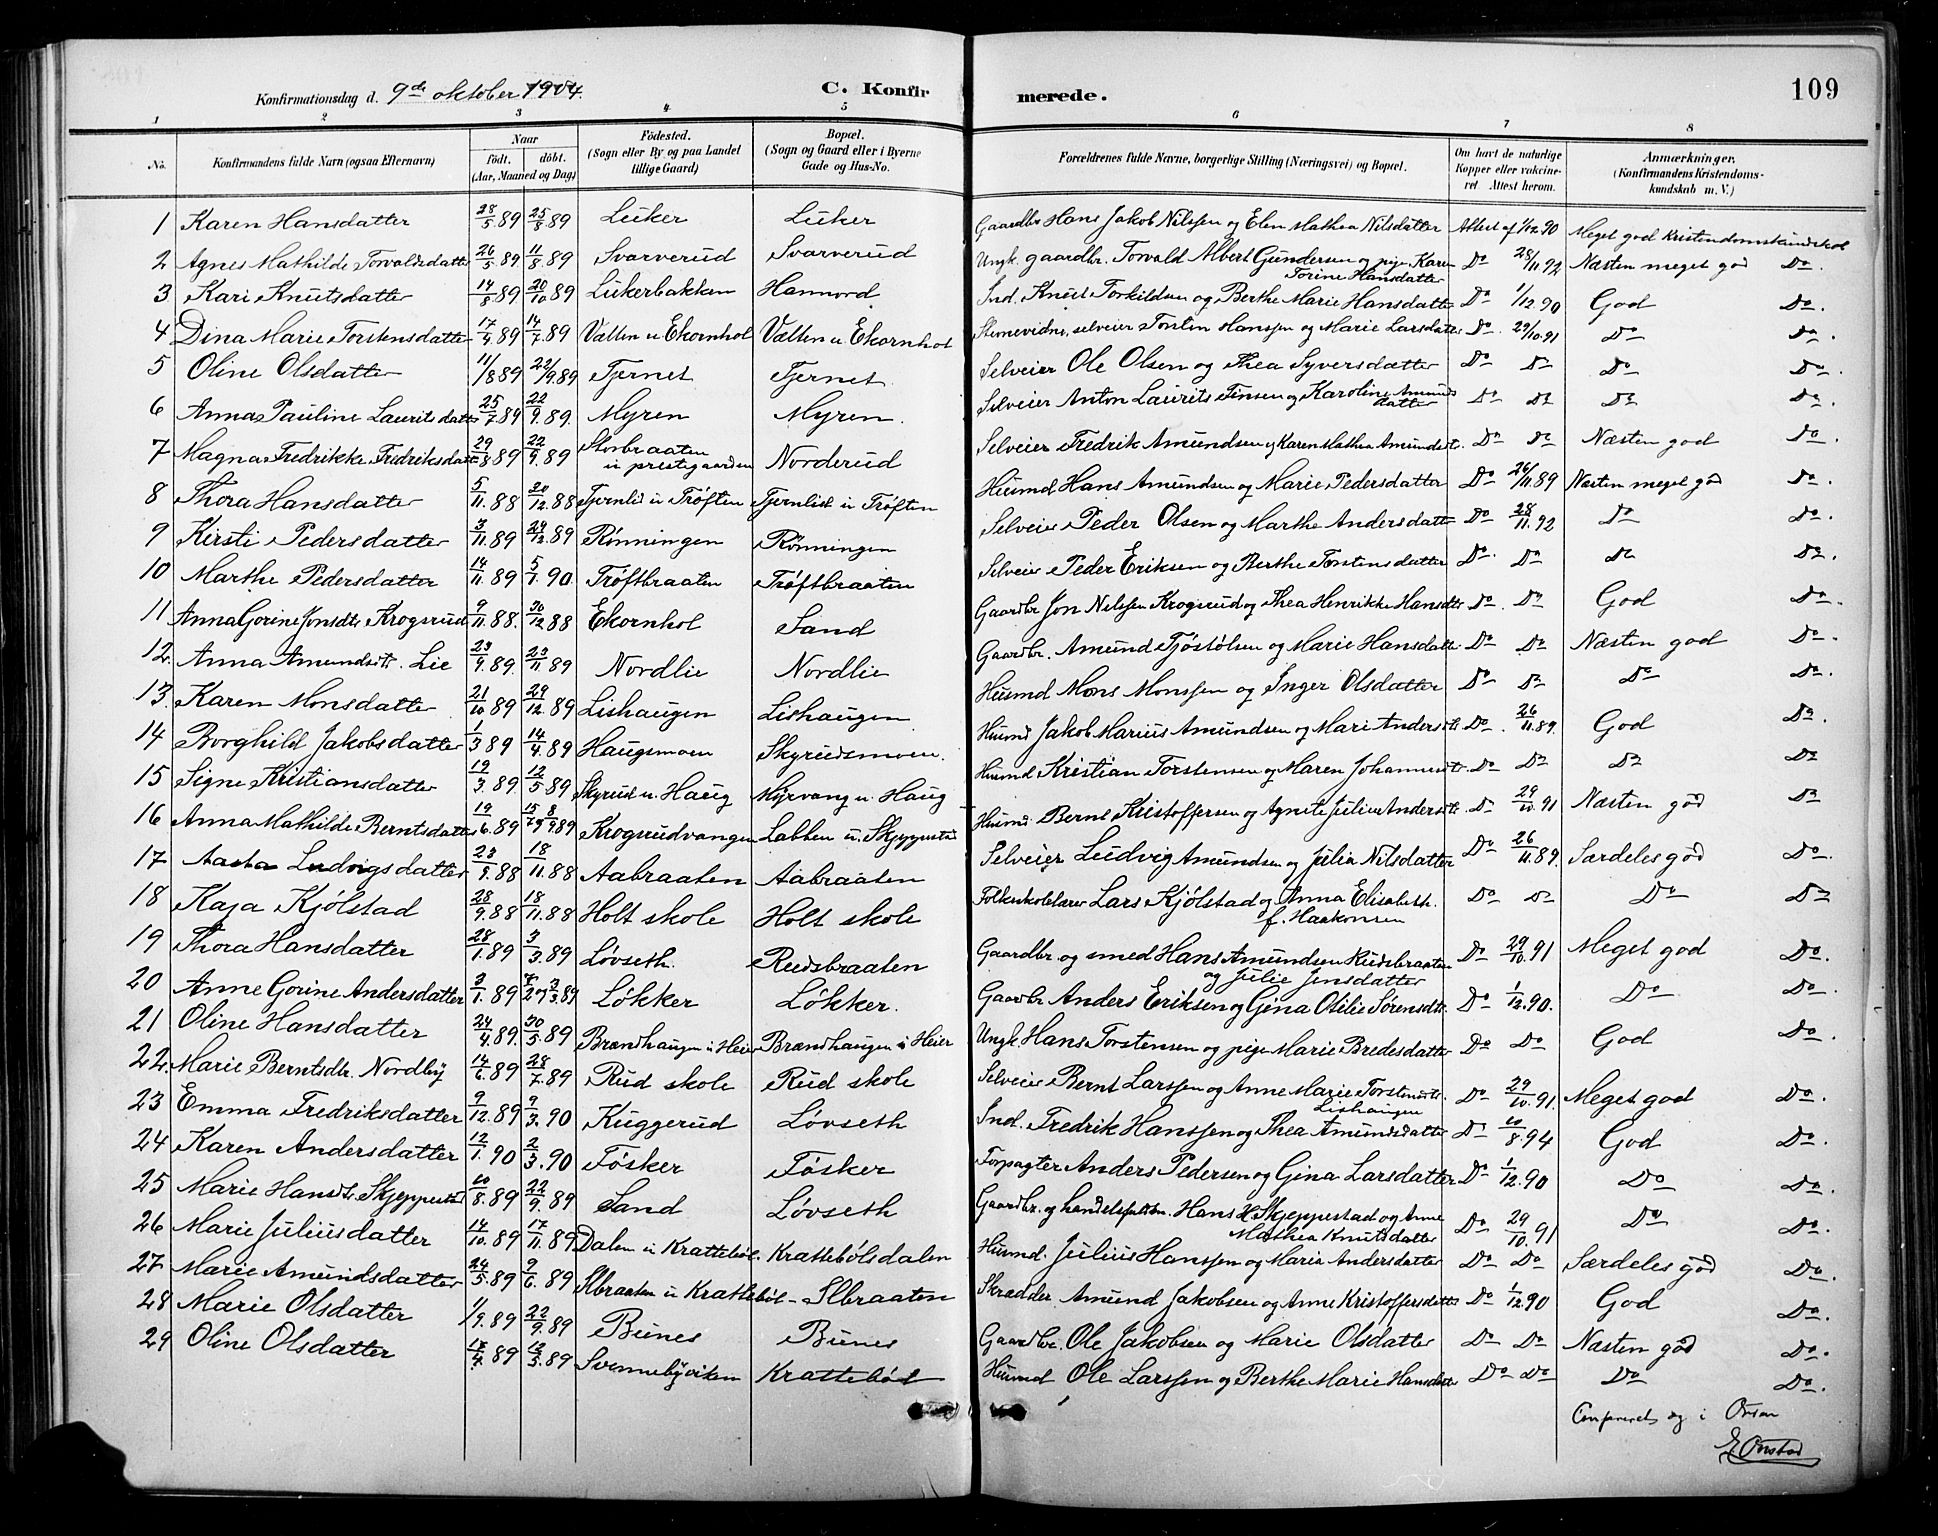 109
Konfirmationsdag d. 9de oktober 1904.
C. Konfirmerede.
1 2 3 4 5 6 7 8
No. Konfirmandens fulde Navn (ogsaa Efternavn) Naar født. døbt. (Aar, Maaned og Dag) Fødested. (Sogn eller By og paa Landet tillige Gaard) Bopæl. (Sogn og Gaard eller i Byerne Gade og Hus-No. Forældrenes fulde Navne, borgerlige Stilling (Næringsvei) og Bopæl. Om havt de naturlige Kopper eller vakcineret. Attest herom. Anmærkninger. (Konfirmandens Kristendomskundskab m. V.)
1 Karen Hansdatter 28/5.89 25/8.89 Luker Luker Gaardbr Hans Jakob Nilssen og Elen Mathea Nilsdatter Attest af 1/12.90 Meget god Kristendomskundskab
2 Agnes Mathilde Torvaldsdatter 26/5.89 11/8.89 Svarverud Svarverud Ungk. gaardbr. Torvald Albert Gundersen og pige Karen Torine Hansdatter Do 28/11.92 Næsten meget god Do.
3 Kari Knutsdatter 14/8.89 20/10.89 Lukerbakken Hannord Ind. Knut Torkildsen og Berthe Marie Hansdatter Do 1/12.90 God Do.
4 Dina Marie Torstensdatter 17/4.89 14/7.89 Vælten u Ekornhol Vælten u Ekornhol Stenevidne, selveier Torstin Hanssen og Marie Larsdatter Do 29/10.91 Do Do.
5 Oline Olsdatter 11/8.89 22/9.89 Tjernet Tjernet Selveier Ole Olsen og Thea Syversdatter Do Do Do Do.
6 Anna Pauline Lauritsdatter 25/7.89 22/9.89. Myren Myren. Selveier Anton Laurits Finsen og Karoline Amundsdatter Do Do Do Do.
7 Magna Fredrikke Fredriksdatt. 29/8.89 22/9.89 Storbraaten u prestegaarden Norderud Selveier Fredrik Amundsen og Karen Mathea Amundsdt. Do Do Næsten god Do.
8 Thora Hansdatter 5/11.88 30/12.88 Tjernlid u Trøften Tjernlid u Trøften Husmd Hans Amundsen og Marie Pedersdatter Do 26/11.89 Næsten meget god Do.
9 Kirsti Pedersdatter 3/11.89 29/12.89 Rønningen Rønningen Selveier Peder Olsen og Marthe Andersdatter Do 28/11.92 Do Do.
10 Marthe Pedersdatter 14/11.89 5/1.90 Trøftbraaten Trøftbraaten Selveier Peder Eriksen og Berthe Torstensdatter Do. Do Do Do.
11 Anna Gorine Jonsdtr Krogsrud 9/11.88. 30/12.88 Ekornhol Sand Gaardbr Jon Nilssen Krogsrud og Thea Henrikke Hansdtr Do. Do God Do.
12. Anna Amundsdt. Lie 23/9.89. 23/11.89 Nordlie Nordlie Gaardbr. Amund Tjøstølsen og Marie Hansdatter Do Do Næsten god Do.
13. Karen Monsdatter 21/10.89 29/12.89 Lishaugen Lishaugen Husmd Mons Monssen og Inger Olsdatter Do Do Do Do.
14 Borghild Jakobsdatter 1/3.89 14/4.89 Haugsmoen Skyrudsmoen. Husmd Jakob Marius Amundsen og Mari Andersdt. Do. 26/11.89. God Do.
15 Signe Kristiansdatter 12/3.89. 12/5.89 Skyrud u. Haug Myrvang u. Haug Husmd Kristian Torstensen og Maren Johannesdt. Do Do Do Do
16 Anna Mathilde Berntsdatter 19/6.89 Krogsrudvangen Labben u. Skjeppestad Husmd. Bernt Kristoffersen og Agnete Juline Andersdt. Do 29/10.91 Næsten god Do
17 Aasta Ludvigsdatter 23/9.88 18/11.88 Aabraaten Aabraaten Selveier Ludvig Amundsen og Julia Nilsdatter Do 26/11.89. Særdeles god Do.
18 Kaja Kjølstad 28/9.88 18/11.88 Holt skole Holt skole Folkeskolelærer Lars Kjølstad og Anna Elisabeth f. Haakonsen Do Do Do Do
19 Thora Hansdatter 28/1.89 3/3.89 Løvseth. Rudsbraaten Gaardbr. og smed Hans Amundsen Rudsbraaten og Julie Jensdatter Do 29/10.91 Meget god Do.
20 Anne Gorine Andersdatter 3/1.89 Løkker Løkker. Gaardbr Anders Eriksen og Gina Otilie Sørensdt. Do 1/12.90. Do Do.
21 Oline Hansdatter 24/4.89. 30/5.89 Brændhaugen u Heier Brændhaugen u Heier Ungk. Hans Torstensen og pige Marie Bredesdatter Do Do God Do.
22. Marie Berntsdt. Nordby 14/6.89 28/7.89 Rud skole Rud skole Selveier Bernt Larssen og Anne Marie Torstensdt. Lishaugen Do 29/10.91. Meget god Do.
23 Emma Fredriksdatter 9/12.89 9/3.90 Kuggerud Løvseth Ind. Fredrik Hanssen og Thea Amundsdatter Do 10/8.94 God Do.
24 Karen Andersdatter 12/1.90 2/3.90 Føsker Føsker Forpagter Anders Pedersen og Gina Larsdatter Do 1/12.90 Do Do.
25 Marie Hansdt. Skjeppestad 10/8.89 22/9.89 Sand Løvseth Gaardbr. og handelsfuldm. Hans H Skjeppestad og Anne Mathea Knutsdatter Do 29/10.91 Do Do.
26 Marie Juliusdatter 14/10.89 17/11.89 Dalen u Krattebøl. Krattebølsdalen Husmd. Julius Hanssen og Maria Andersdatter Do Do Særdeles god Do.
27 Marie Amundsdatter 24/5.89 9/6.89 Slbraaten u Krattebøl Slbraaten Skrædder Amund Jakobsen og Anne Kristoffersdatter Do 1/12.90 God Do.
28 Marie Olsdatter 1/9.89 22/9.89 Bunes Bunes Gaardbr. Ole Jakobsen og Marie Olsdatter Do Do Næsten god Do.
29 Oline Olsdatter 89 12/5.89 Svennebyviken Krattebøl Husmd Ole Larssen og Berthe Marie Hansdatter Do Do Do Do.
Confereret og i Orden
E Onstad